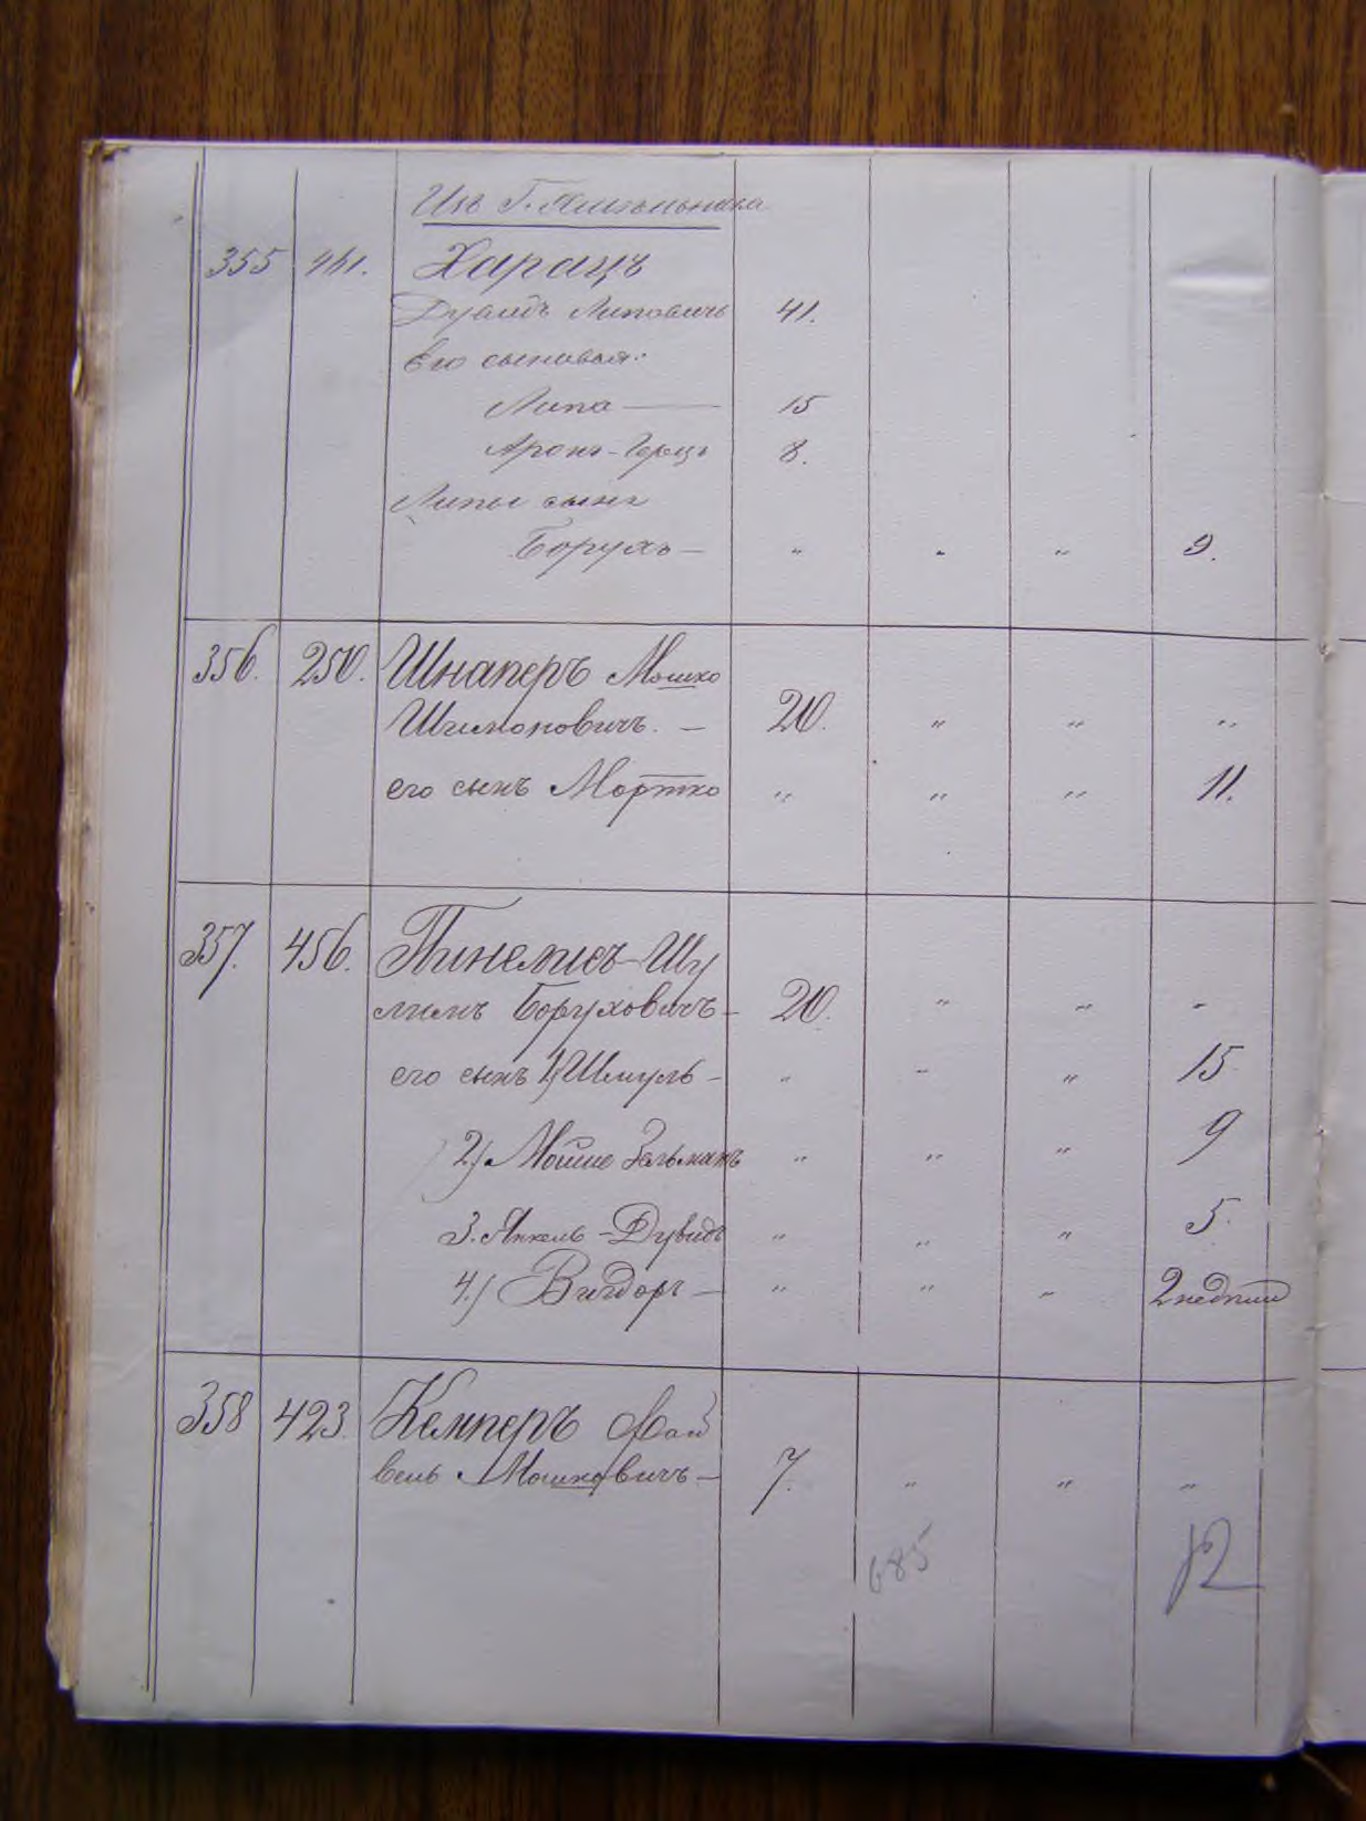 Изъ Г.
355 Харацъ
Дувидъ Липовичъ 41.
Его сыновья:
Липа — 15
Аронъ-Герцъ 8.
Липы сынъ
Борухъ — " " " 9.
356. 250. Шнаперъ Мошко
Шимоновичъ. — 20. " " "
его сынъ Мортко " " " 11.
357. 456. Пинемисъ Шу
лимъ Боруховичъ — 20. " " "
его сынъ 1) Шмуль — " " " 15
2) Мойше Зельманъ " " " 9
3. Янкель-Дувидъ " " " 5.
4.) Вигдоръ — " " " 2 недѣли
358 423. Кемперъ
вель Мошковичъ — 7. " " "
685 12